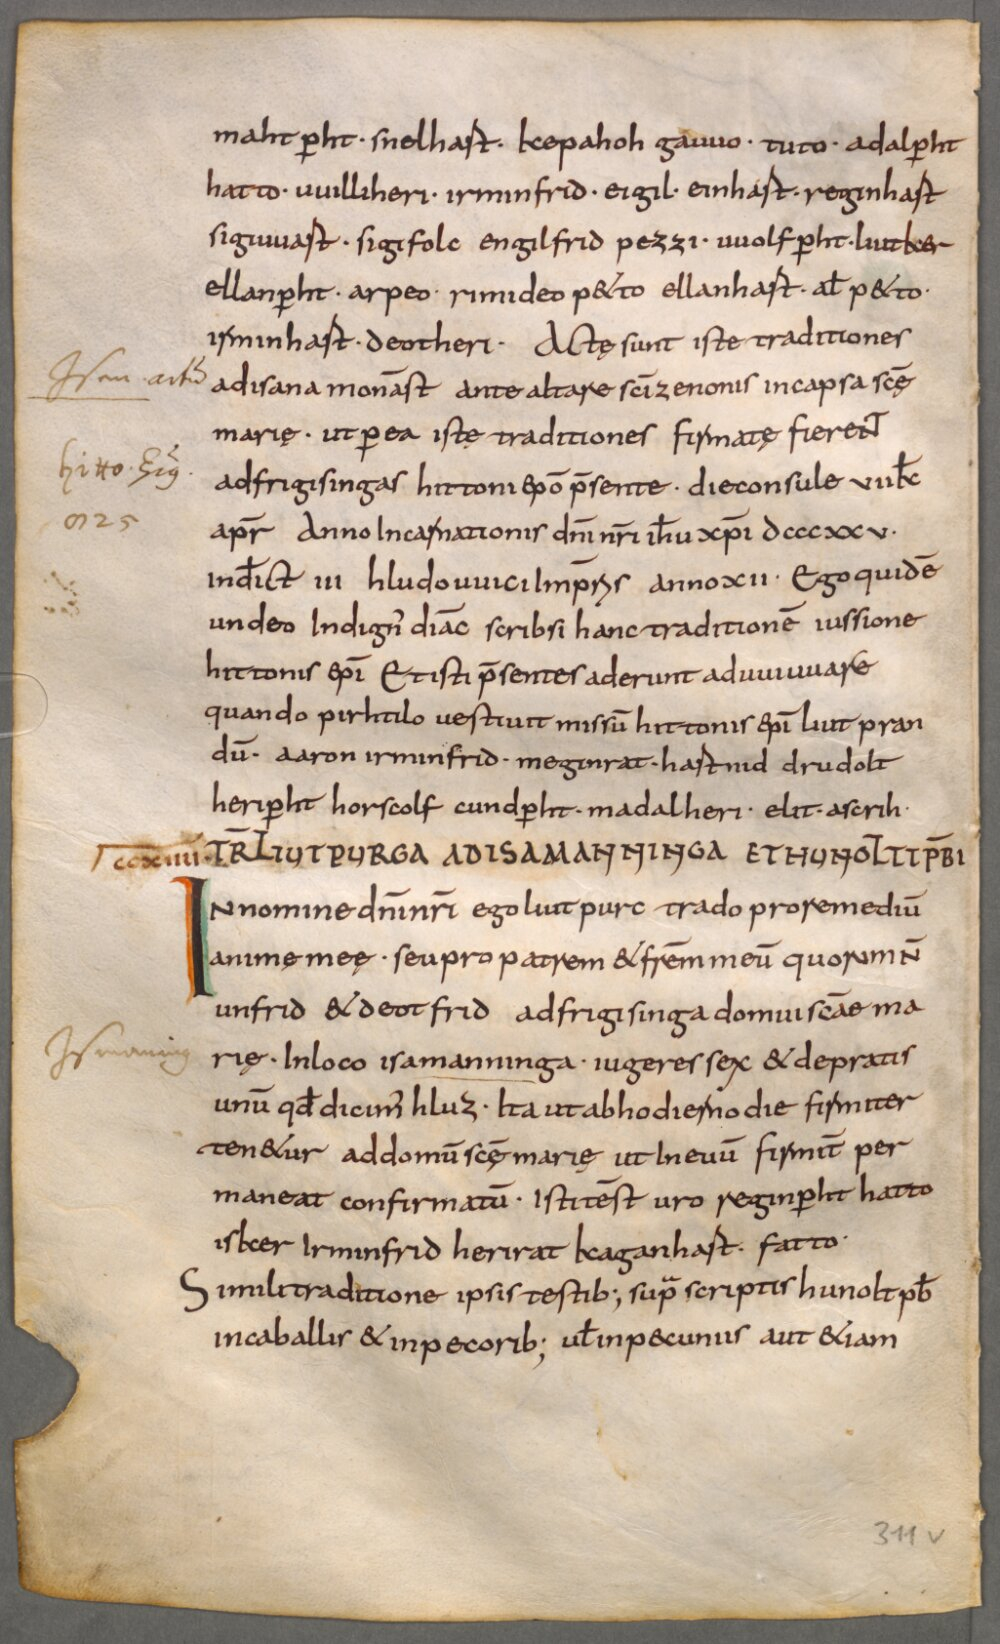 maht p̄ht · snelhast · kepahoh gauuo · tuto · adalp̄ht
hatto · uuilliheri · irminfrid · eigil · einhast · reginhast
sigiuuast · sigifolc engilfrid pezzi · uuolfp̄ht · liutker
ellanp̄ht · arpeo · rimideo p&to ellanhast · al̄ p&to ·
irminhast · deotheri · Actę sunt iste traditiones
Isen
adisana monāst ante altare sc̄i zenonis in capsa scę̄
marię · ut p̄ ea istę traditiones firmatę fierent
hitto
adfrigisingas hittoni ep̄o p̄sente · die consule vii kł
825
ap̄r Anno Incarnationis dn̄i nr̄i ih̄u xp̄i dcccxxv ·
ind̄ict iii hludouuici Imp̄ris anno xii · Ego quidē
undeo Indign̄ diāc scribsi hanc traditionē iussione
hittonis ep̄i Et isti p̄sentes aderunt ad uuiuuare
quando pirhtilo uestiuit missū hittonis ep̄i liutpran
dū · aaron irminfrid · meginrat · hastnid drudolt
herip̄ht horscolf cundp̄ht · madalheri · elit · ascrih ·
ccxiiii · TR̄ LIUTPURGA AD ISAMANNINGA ET HUNOLTI PR̄BI
In nomine dn̄i nr̄i ego liutpurc trado pro remediū
animę meę · seu pro patrem & frēm meū quorum n̄
unfrid & deotfrid adfrigisinga domui scāe ma
Ismaning
rię · In loco isamanninga · iugeres sex & de pratis
unū qđ dicim̄ hluz · Ita ut ab hodierno die firmiter
ten&ur ad domū scę̄ marię ut In euū firmit̄ per
maneat confirmatū · Isti tēst uro reginp̄ht hatto
isker Irminfrid herirat kaganhast · fatto ·
Simili traditione ipsis testib; sup̄ scriptis hunolt pb̄
in caballis & in pecorib; ul̄ in pecuniis aut &iam
311 v